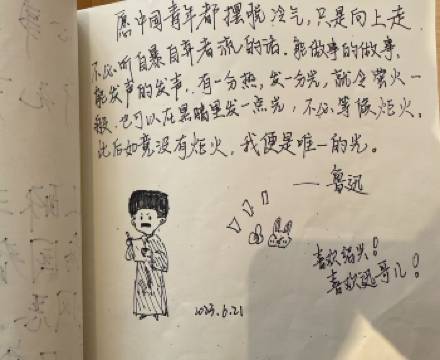 愿中国青年都摆脱冷气，只是向上走，
不必听自暴自弃者流的话。能做事的做事，
能发声的发声。有一分热，发一分光，就令萤火一
般，也可以在黑暗里发一点光，不必等候炬火。
此后如竟没有炬火，我便是唯一的光。
——鲁迅
喜欢
喜欢迅哥儿！
2023.6.21